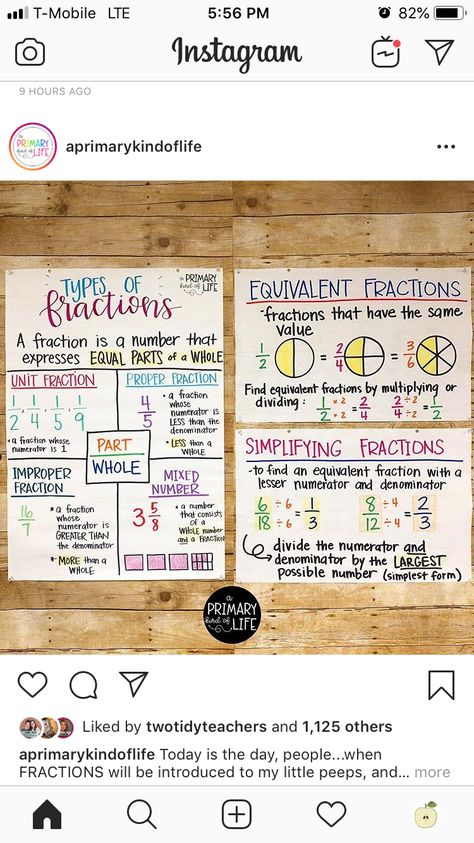 T-Mobile LTE 5:56 PM 82%
Instagram
9 HOURS AGO
A PRIMARY kind of LIFE
aprimarykindoflife
TYPES OF
fractions
A PRIMARY KIND OF LIFE
A fraction is a number that
expresses EQUAL PARTS of a WHOLE
UNIT FRACTION
1/2, 1/4, 1/5, 1/9
• a fraction whose
numerator is 1
PROPER FRACTION
4/5
• a fraction
whose
numerator is
LESS than the
denominator
• LESS than a
WHOLE
PART
WHOLE
IMPROPER
FRACTION
16/7
• a fraction
whose
numerator is
GREATER THAN
the denominator
• MORE than a
WHOLE
MIXED
NUMBER
3 5/8
• a number
that consists
of a
WHOLE number
and a FRACTION
EQUIVALENT FRACTIONS
- fractions that have the same
value
1/2 = 2/4 = 3/6
Find equivalent fractions by multiplying or
dividing: 1/2 ×2/×2 = 2/4 2/4 ÷2/÷2 = 1/2
SIMPLIFYING FRACTIONS
- to find an equivalent fraction with a
lesser numerator and denominator
6/18 ÷6/÷6 = 1/3 8/12 ÷4/÷4 = 2/3
divide the numerator and
denominator by the LARGEST
possible number (simplest form)
a PRIMARY kind of LIFE
Liked by twotidyteachers and 1,125 others
aprimarykindoflife Today is the day, people...when
FRACTIONS will be introduced to my little peeps, and... more